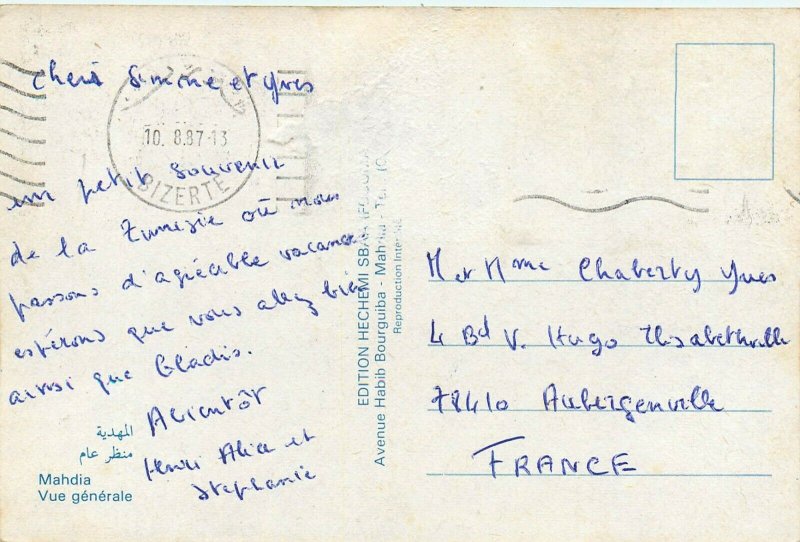 Chers Simone et Yves
un petit souvenir
de la Tunisie où nous
passons d'agréable vacances
espérons que vous allez bien
ainsi que Gladis.
Abientôt
Henri Alice et
Stephanie
10. 8.87-13
BIZERTE
المهدية
منظر عام
Mahdia
Vue générale
EDITION HECHEMI SBAA
Avenue Habib Bourguiba - Mahdia - Tu
Reproduction Interdite
M et Mme Chaberty Yves
4 Bd V. Hugo Elisabethville
78410 Aubergenville
FRANCE